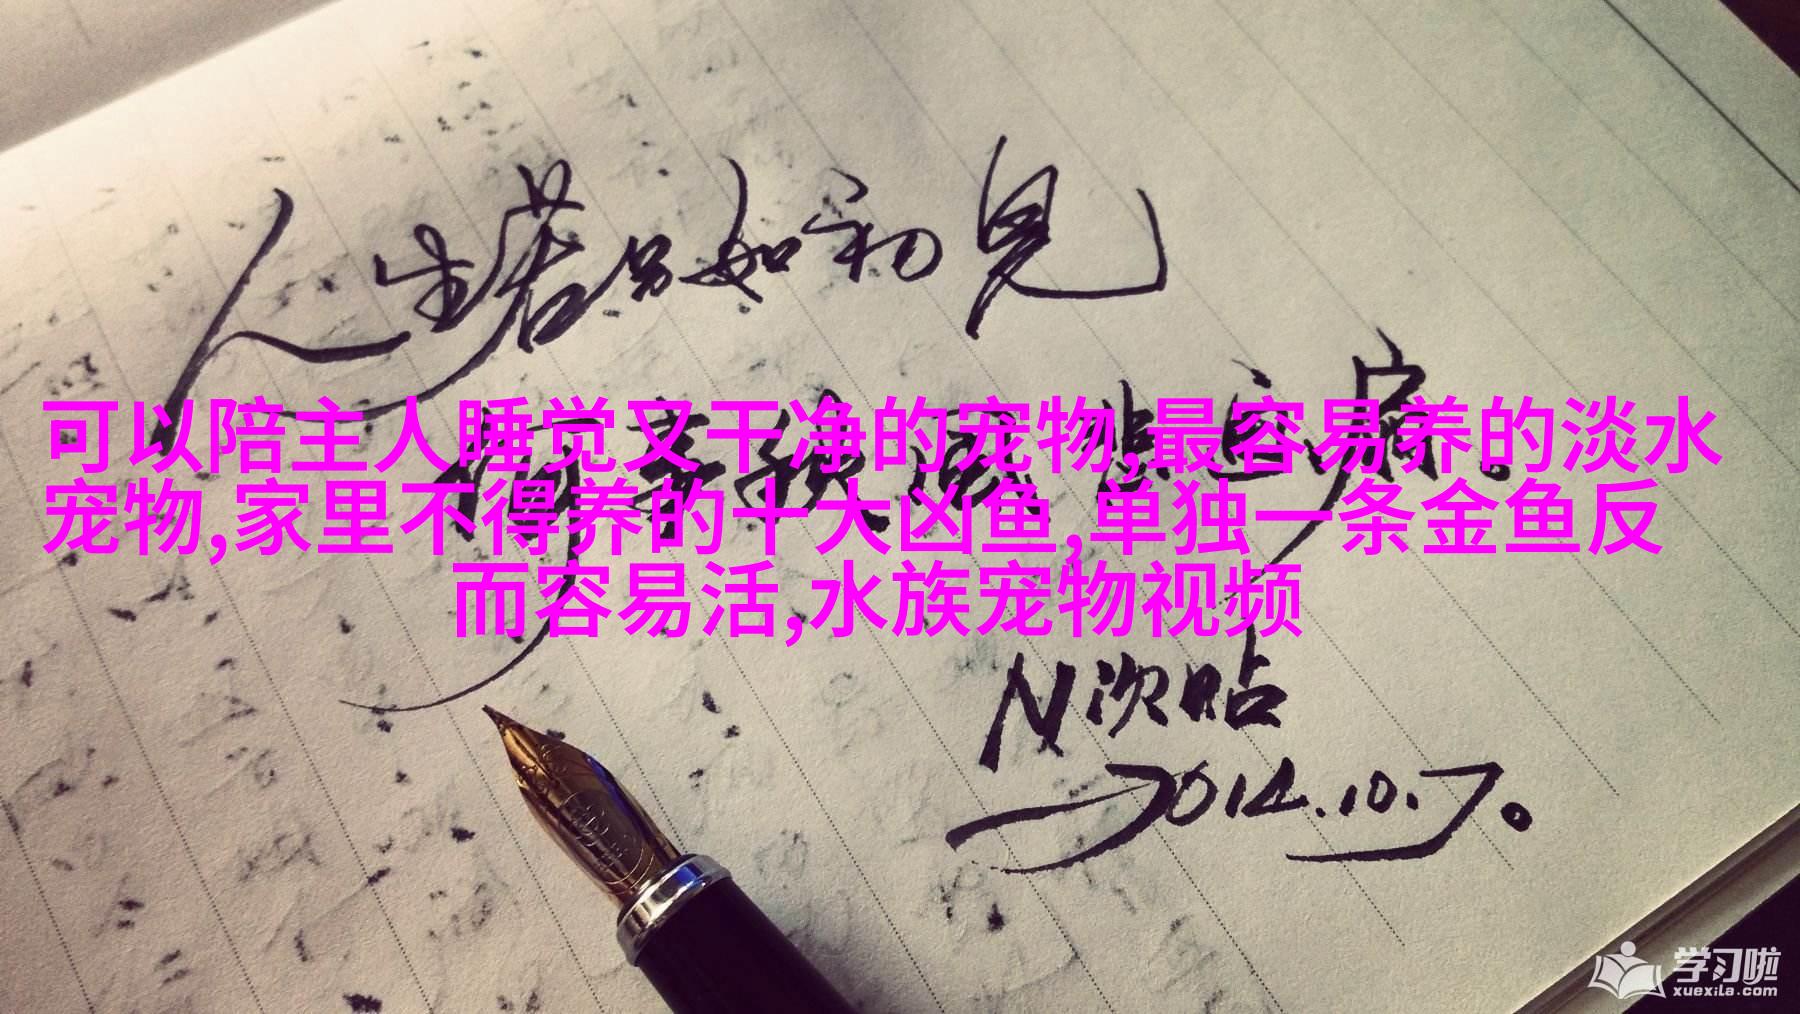 人生若只如初见
何事秋风悲画扇。
可以陪主人睡觉又干净的宠物,最容易养的淡水
宠物,家里不得养的十大凶鱼,单独一条金鱼反
而容易活,水族宠物视频
N次贴
2014.10.7。
学习啦
xuexila.com